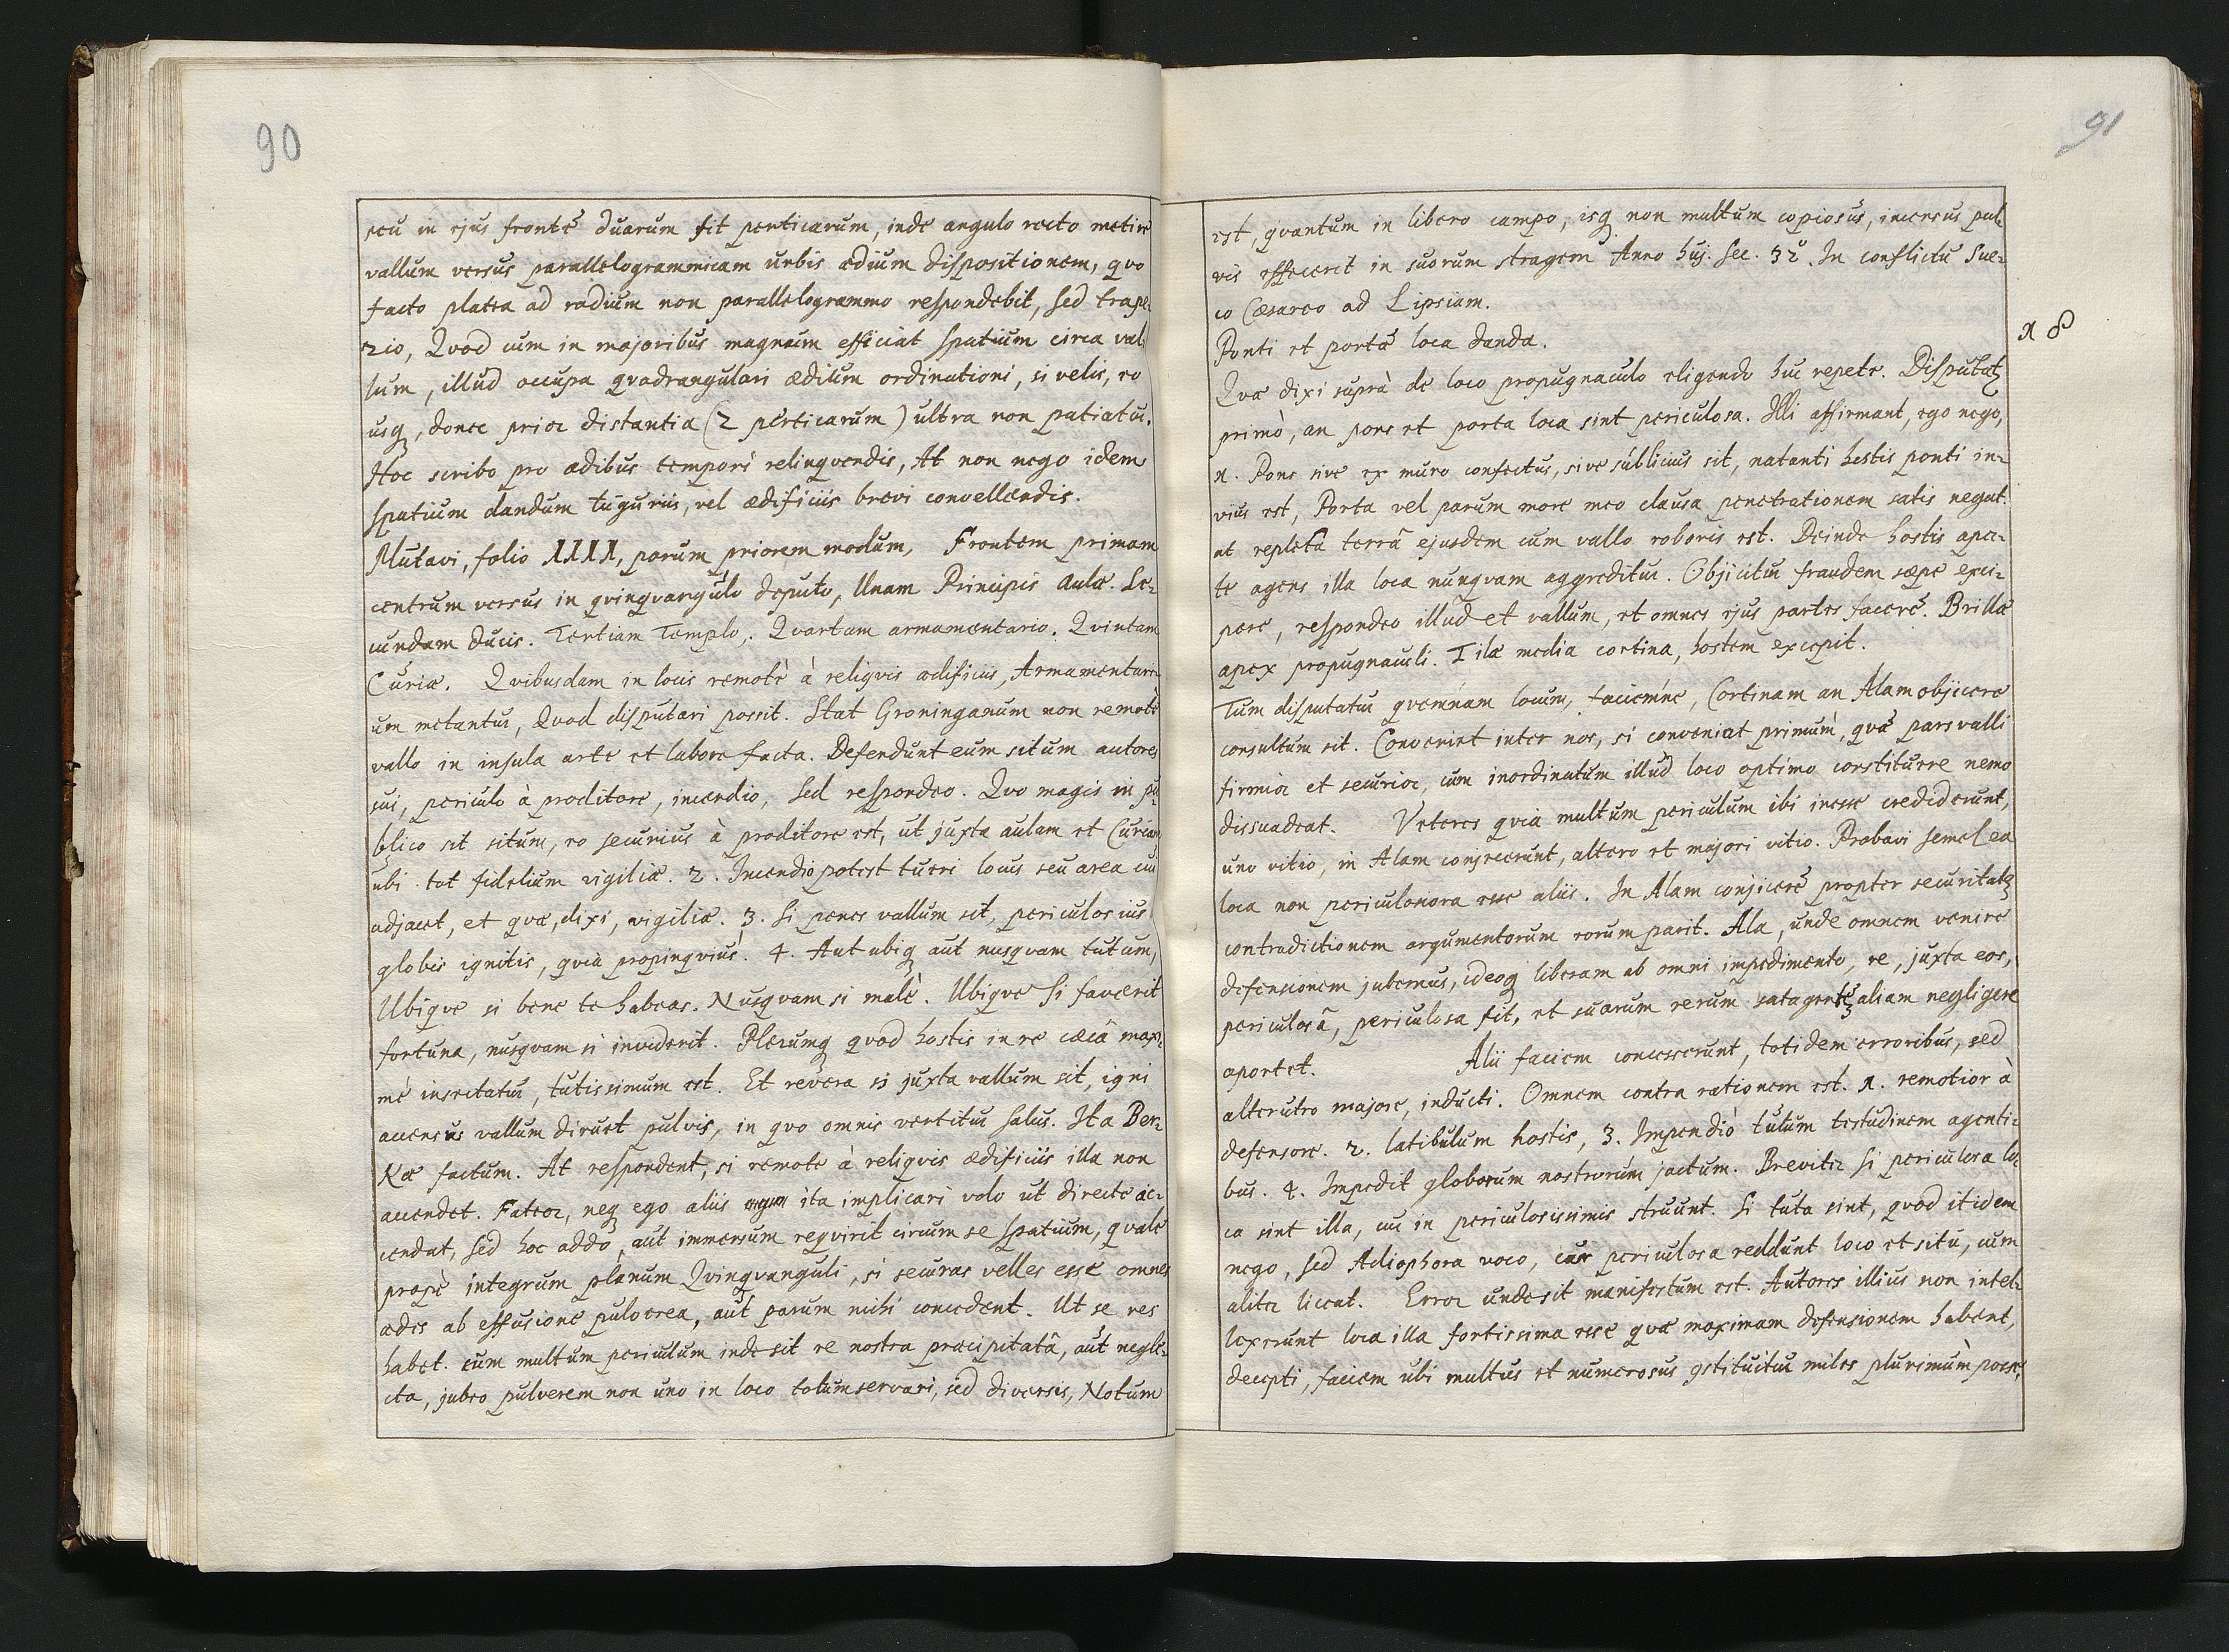 90
seu in ejus fronte duarum fit perticarum, inde angulo recto metire
vallum versus parallelogrammicam urbis ædium dispositionem, qvo
facto platea ad radium non parallelogrammo respondebit, sed trape-
zio, Qvod cum in majoribus magnum efficiat spatium circa val-
lum, illud occupa qvadrangulari ædium ordinationi, si velis, eo
usq, donec prior distantia (2 perticarum) ultra non patiatur.
Hoc scribo pro ædibus tempori relinqvendis, At non nego idem
spatium dandum tuguriis, vel ædificiis brevi convellendis.
Mutavi, folio 1111, parum priorem modum, Frontem primam
centrum versus in qvinqvangulo deputo, Unam Principis Aulæ. Se-
cundam ducis. Tertiam Templo. Qvartam armamentario. Qvintam
Curiæ. Qvibusdam in locis remotè à reliqvis ædificiis, Armamentari-
um metantur, Qvod disputari possit. Stat Groninganum non remotè
vallo in insula arte et labore facta. Defendunt eum situm autores
sui, periculo à proditore, incendio, sed respondeo. Qvo magis in pu-
blico sit situm, eo securius à proditore est, ut juxta aulam et Curiam
ubi tot fidelium vigiliæ. 2. Incendio potest tueri locus seu area cui
adjacet, et qvæ, dixi, vigiliæ. 3. Si penes vallum sit, periculosius
globis ignitis, qvia propinqvius. 4. Aut ubiq aut nusqvam tutum,
Ubiqve si bene te habeas. Nusqvam si malè. Ubiqve si faverit
fortuna, nusqvam si inviderit. Plerumq qvod hostis in re cæcâ maxi-
mè insectatur, tutissimum est. Et revera si juxta vallum sit, igni
accensus vallum diruet pulvis, in qvo omnis vertitur salus. Ita Ber-
kæ factum. At respondent, si remote à reliqvis ædificiis illa non
accendet. Fateor, neq ego aliis ita implicari volo ut directe ac-
cendat, sed hoc addo, aut immensum reqvirit circum se spatium, qvale
propè integrum planum Qvinqvanguli, si securas velles esse omnes
ædes ab effusione pulverea, aut parum mihi concedent. Ut se res
habet. cum multum periculum inde sit re nostra præcipitatâ, aut negle-
cta, jubeo pulverem non uno in loco totum servari, sed diversis, Notum
91
est, qvantum in libero campo, isq non multum copiosus, incensus pul-
vis effecerit in suorum stragem Anno huj. Sec. 32. In conflictu Sue-
co Cæsareo ad Lipsiam.
Ponti et portæ loca danda.
18
Qvæ dixi suprà de loco propugnaculo eligendo huc repete. Disputat
primò, an pons et porta loca sint periculosa. Illi affirmant, ego nego,
1. Pons sive ex muro confectus, sive sublicius sit, natanti hostis ponti in-
vius est, Porta vel parum more meo clausa penetrationem satis negat.
at repleta terrâ ejusdem cum vallo roboris est. Deinde hostis aper-
te agens illa loca nunqvam aggreditur. Objicitur fraudem sæpe exci-
pere, respondeo illud et vallum, et omnes ejus partes facere. Brillæ
apex propugnaculi. Tilæ media cortina, hostem excepit.
Tum disputatur qvemnam locum, faciemne, Cortinam an Alam objicere
consultum sit. Conveniet inter nos, si conveniat primùm, qvæ pars valli
firmior et securior, cum inordinatum illud loco optimo constituere nemo
dissuadeat. Veteres qvia multum periculum ibi inesse crediderunt,
uno vitio, in Alam conjecerunt, altero et majori vitio. Probavi semel ea
loca non periculosiora esse aliis. In Alam conjicere propter securitatem
contradictionem argumentorum eorum parit. Ala, unde omnem venire
defensionem jubemus, ideoq liberam ab omni impedimento, re, juxta eos,
periculosâ, periculosa fit, et suarum rerum satagente aliam negligere
oportet. Alii faciem concesserunt, totidem erroribus, sed
alterutro majore, inducti. Omnem contra rationem est. 1. remotior à
defensore. 2. latibulum hostis, 3. Impendiò tutum testudinem agenti-
bus. 4. Impedit globorum nostrorum jactum. Breviter si periculosa lo-
ca sint illa, cur in periculosissimis struunt. Si tuta sint, qvod itidem
nego, sed Adiaphora voco, cur periculosa reddunt loco et situ, cum
aliter liceat. Error unde sit manifestum est. Autores illius non intel-
lexerunt loca illa fortissima esse qvæ maximam defensionem habent,
decepti, faciem ubi multus et numerosus constituitur miles plurimùm posse,